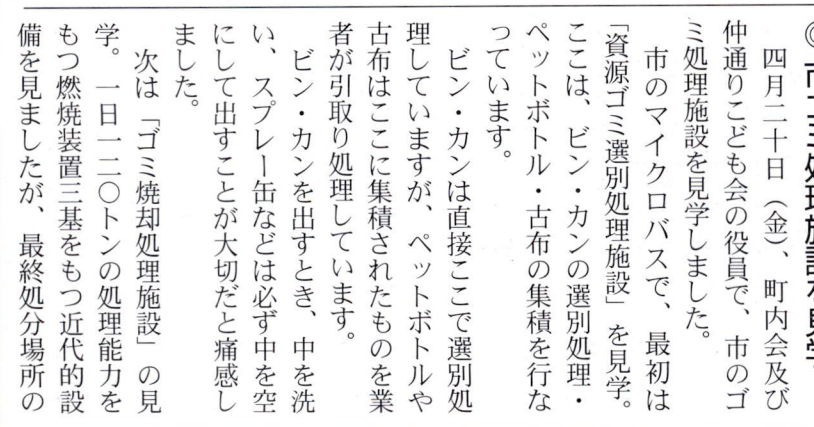 四月二十日（金）、町内会及び
仲通りこども会の役員で、市のゴ
ミ処理施設を見学しました。
市のマイクロバスで、最初は
「資源ゴミ選別処理施設」を見学。
ここは、ビン・カンの選別処理・
ペットボトル・古布の集積を行な
っています。
ビン・カンは直接ここで選別処
理していますが、ペットボトルや
古布はここに集積されたものを業
者が引取り処理しています。
ビン・カンを出すとき、中を洗
い、スプレー缶などは必ず中を空
にして出すことが大切だと痛感し
ました。
次は「ゴミ焼却処理施設」の見
学。一日一二〇トンの処理能力を
もつ燃焼装置三基をもつ近代的設
備を見ましたが、最終処分場所の